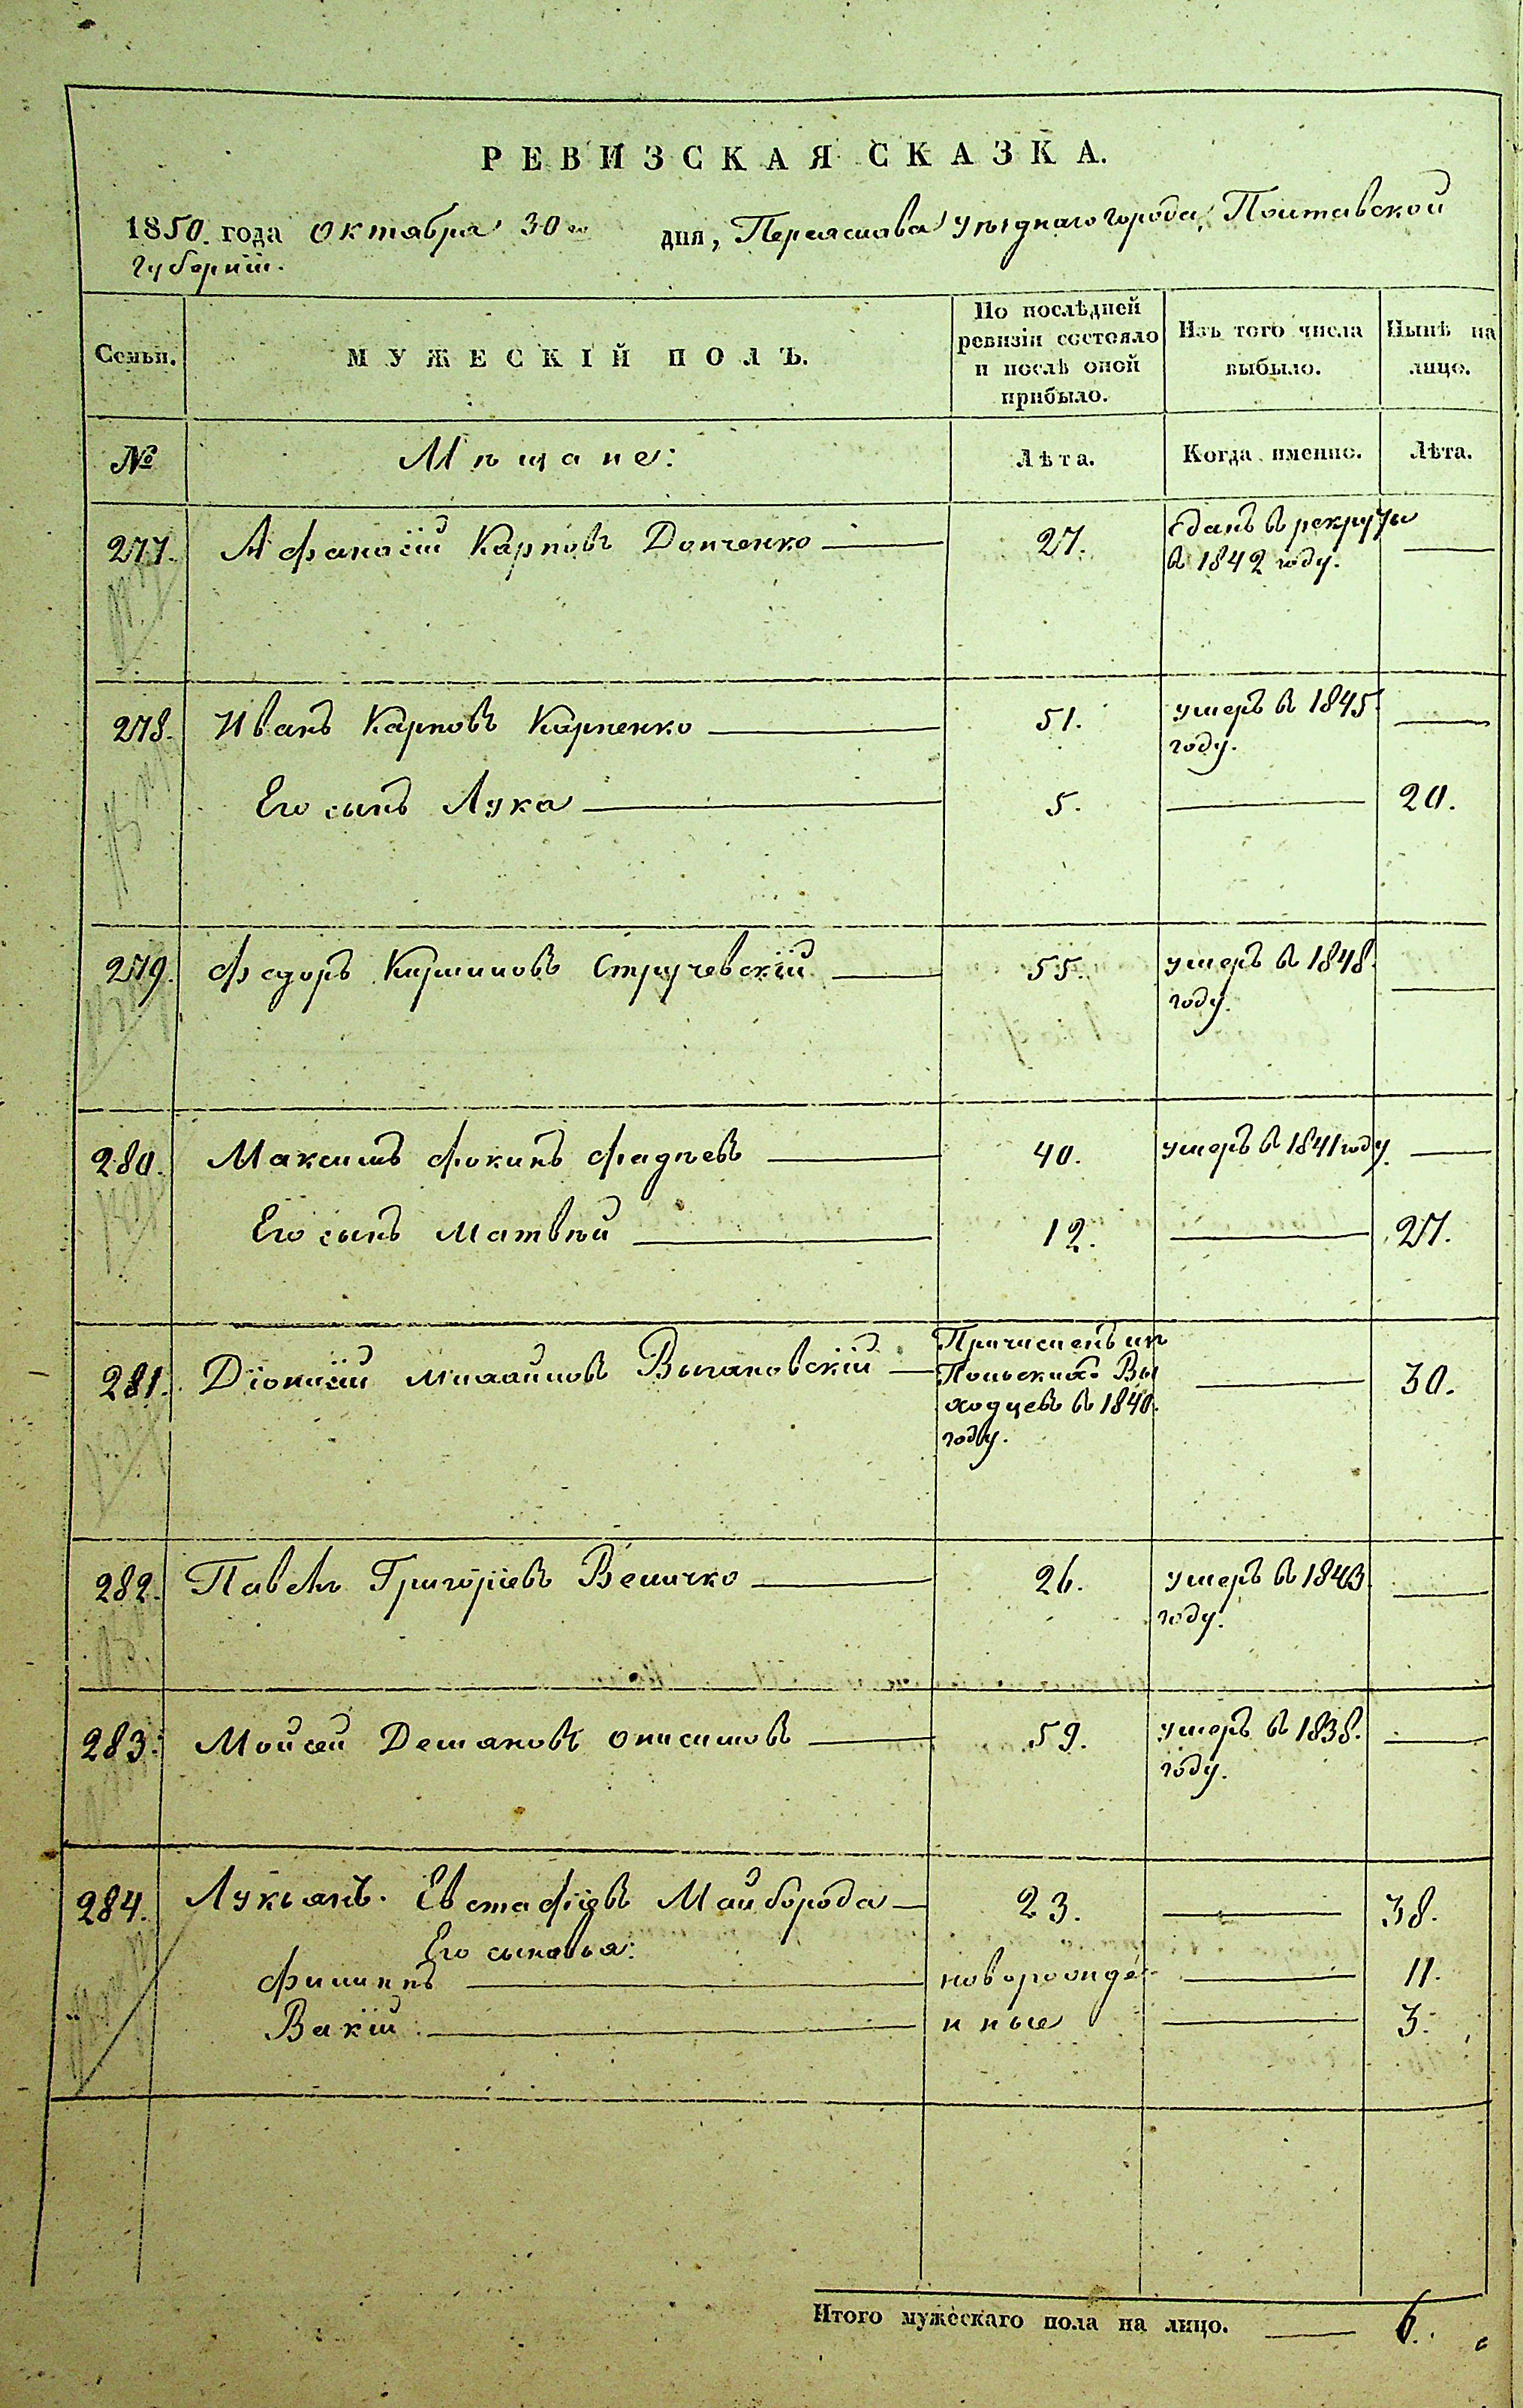 РЕВИЗСКАЯ СКАЗКА.
1850. года октября 30го дня, Переяслава уѣзднаго города, Полтавской
губерніи.
Семьи.
МУЖЕСКІЙ ПОЛЪ.
По послѣдней
ревизіи состояло
и послѣ оной
прибыло.
Изъ того числа
выбыло.
Нынѣ на
лицо.
№ Мѣщане: Лѣта. Когда именно. Лѣта.
277. Афанасій Карповъ Донченко 27. Сданъ в рекруты
в 1842 году.
278. Иванъ Карповъ Карпенко 51. умеръ в 1845
году.
Его сынъ Лука 5. 20.
279. Федоръ Кириловъ Стручевскій 55. умеръ в 1848.
году.
280. Максимъ Фокинъ Фадѣевъ 40. умеръ в 1841 году.
Его сынъ Матвѣй 12. 27.
281. Діонисій Михайловъ Выгановскій Причисленъ изъ
Польскихъ Вы
ходцевъ в 1840.
году. 30.
282. Павелъ Григоріевъ Величко 26. умеръ в 1843
году.
283. Моисей Демяновъ Онисимовъ 59. умеръ в 1838.
году.
284. Лукьянъ. Евстафіевъ Майборода 23. 38.
Его сыновья:
Филипъ новорожде- 11.
Вакій нные 3.
Итого мужескаго пола на лицо. 6.